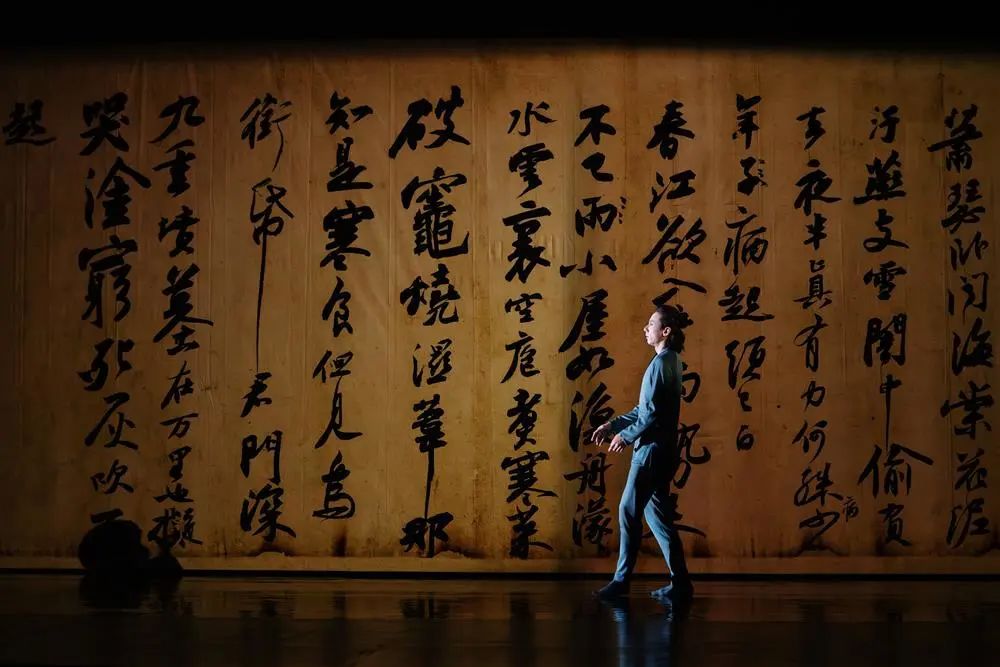 蕭瑟卧聞海棠花泥
汙燕支雪闇中偷負
去夜半真有力何殊少病
年子病起須已白
春江欲入雨勢來
不已雨小屋如漁舟濛
水雲裏空庖煮寒菜
破竈燒濕葦那
知是寒食但見烏
銜帋君門深
九重墳墓在万里也擬
哭塗窮死灰吹
起